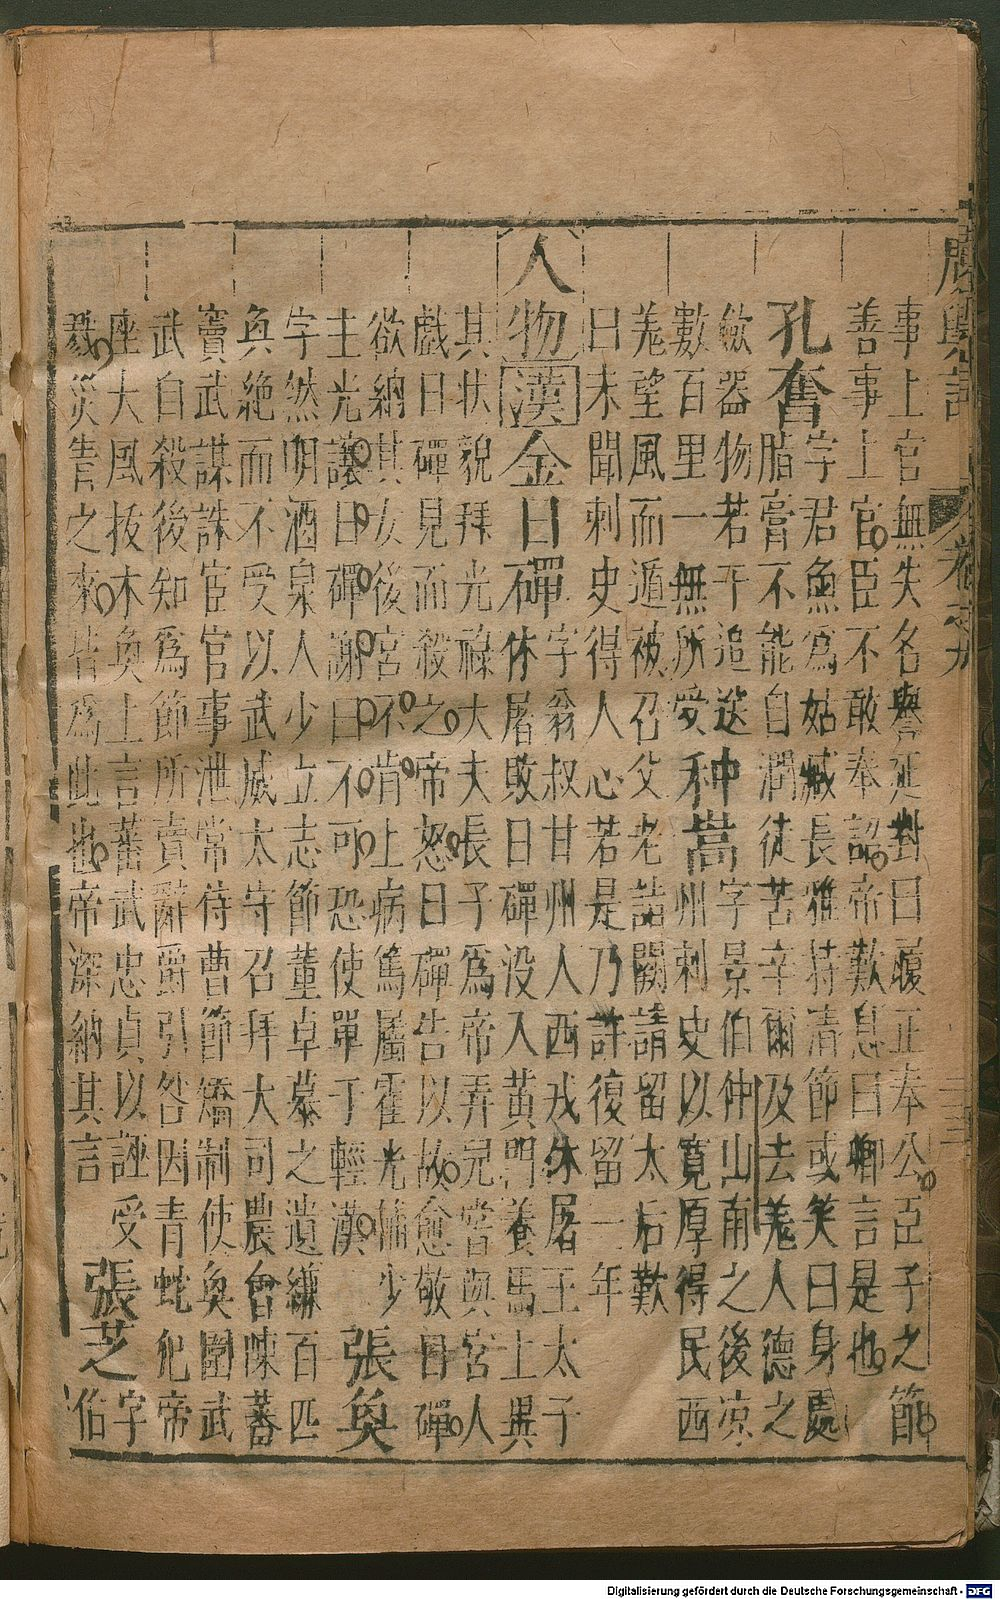 廣輿記 卷之九
事上官無失名譽延對曰履正奉公臣子之節
善事上官臣不敢奉詔帝歎息曰卿言是也
孔奮
字君魚為姑臧長雅持清節或笑曰身處
脂膏不能自潤徒苦辛爾及去羗人德之
斂器物若干追送
數百里一無所受
种暠
字景伯仲山甫之後凉
州刺史以寬厚得民西
羗望風而遁被召父老詣闕請留太后歎
曰未聞刺史得人心若是乃許復留一年
人物
漢
金日磾
字翁叔甘州人西戎休屠王太子
休屠敗日磾没入黃門養馬上異
其狀貌拜光祿大夫長子為帝弄兒嘗與宮人
戲日磾見而殺之帝怒日磾告以故愈敬日磾
欲納其女後宮不肯上病篤屬霍光備少
主光讓日磾謝曰不可恐使單于輕漢
張奐
字然明酒泉人少立志節董卓慕之遺縑百匹
奐絶而不受以武威太守召拜大司農會陳蕃
竇武謀誅宦官事泄常侍曹節矯制使奐圍武
武自殺後知為節所賣辭爵引咎因青蛇犯帝
座大風拔木奐上言蕃武忠貞以誣受
戮災眚之來皆為此也帝深納其言
張芝
字
伯
Digitalisierung gefördert durch die Deutsche Forschungsgemeinschaft - DFG